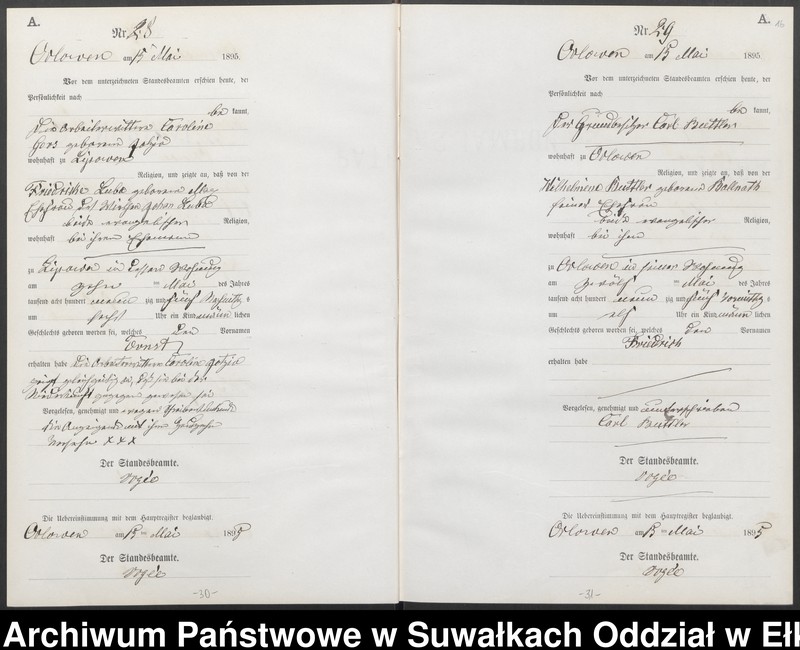 A.
Nr. 28
Orlowen am 15 Mai 1895.
Vor dem unterzeichneten Standesbeamten erschien heute, der
Persönlichkeit nach
be kannt,
Die Arbeiterwittwe Caroline
geborene
wohnhaft zu Lipowen
Religion, und zeigte an, daß von der
Friedrike Lubb geborene May
Ehefrau des Wirthen Johan Lubb
beide evangelischer Religion,
wohnhaft bei ihrem Ehemann
zu Lipowen in dessen Wohnung
am zehn ten Mai des Jahres
tausend acht hundert neun zig und fünf Nachmittags
um sechs Uhr ein Kind männ lichen
Geschlechts geboren worden sei, welches den Vornamen
Ernst
erhalten habe Die Arbeiterwittwe Caroline
zeigt gleichzeitig an, daß sie bei der
Niederkunft zugegen gewesen sei
Vorgelesen, genehmigt und wegen
die Anzeigende mit ihrem Handzeichen
versehn XXX
Der Standesbeamte.
Die Uebereinstimmung mit dem Hauptregister beglaubigt.
Orlowen am 15 ten Mai 1895
Der Standesbeamte.
-30-
A.
Nr. 29
Orlowen am 15 Mai 1895.
Vor dem unterzeichneten Standesbeamten erschien heute, der
Persönlichkeit nach
be kannt,
Der Grundbesitzer Carl Buttler
wohnhaft zu Orlowen
Religion, und zeigte an, daß von der
Wilhelmine Buttler geborene Ballnath
seiner Ehefrau
beide evangelischer Religion,
wohnhaft bei ihm
zu Orlowen in seiner Wohnung
am zwölf ten Mai des Jahres
tausend acht hundert neun zig und fünf Vormittags
um elf Uhr ein Kind männ lichen
Geschlechts geboren worden sei, welches den Vornamen
Friedrich
erhalten habe
Vorgelesen, genehmigt und unterschrieben
Carl Buttler
Der Standesbeamte.
Die Uebereinstimmung mit dem Hauptregister beglaubigt.
Orlowen am 15 ten Mai 1895
Der Standesbeamte.
-31-
Archiwum Państwowe w Suwałkach Oddział w Ełk